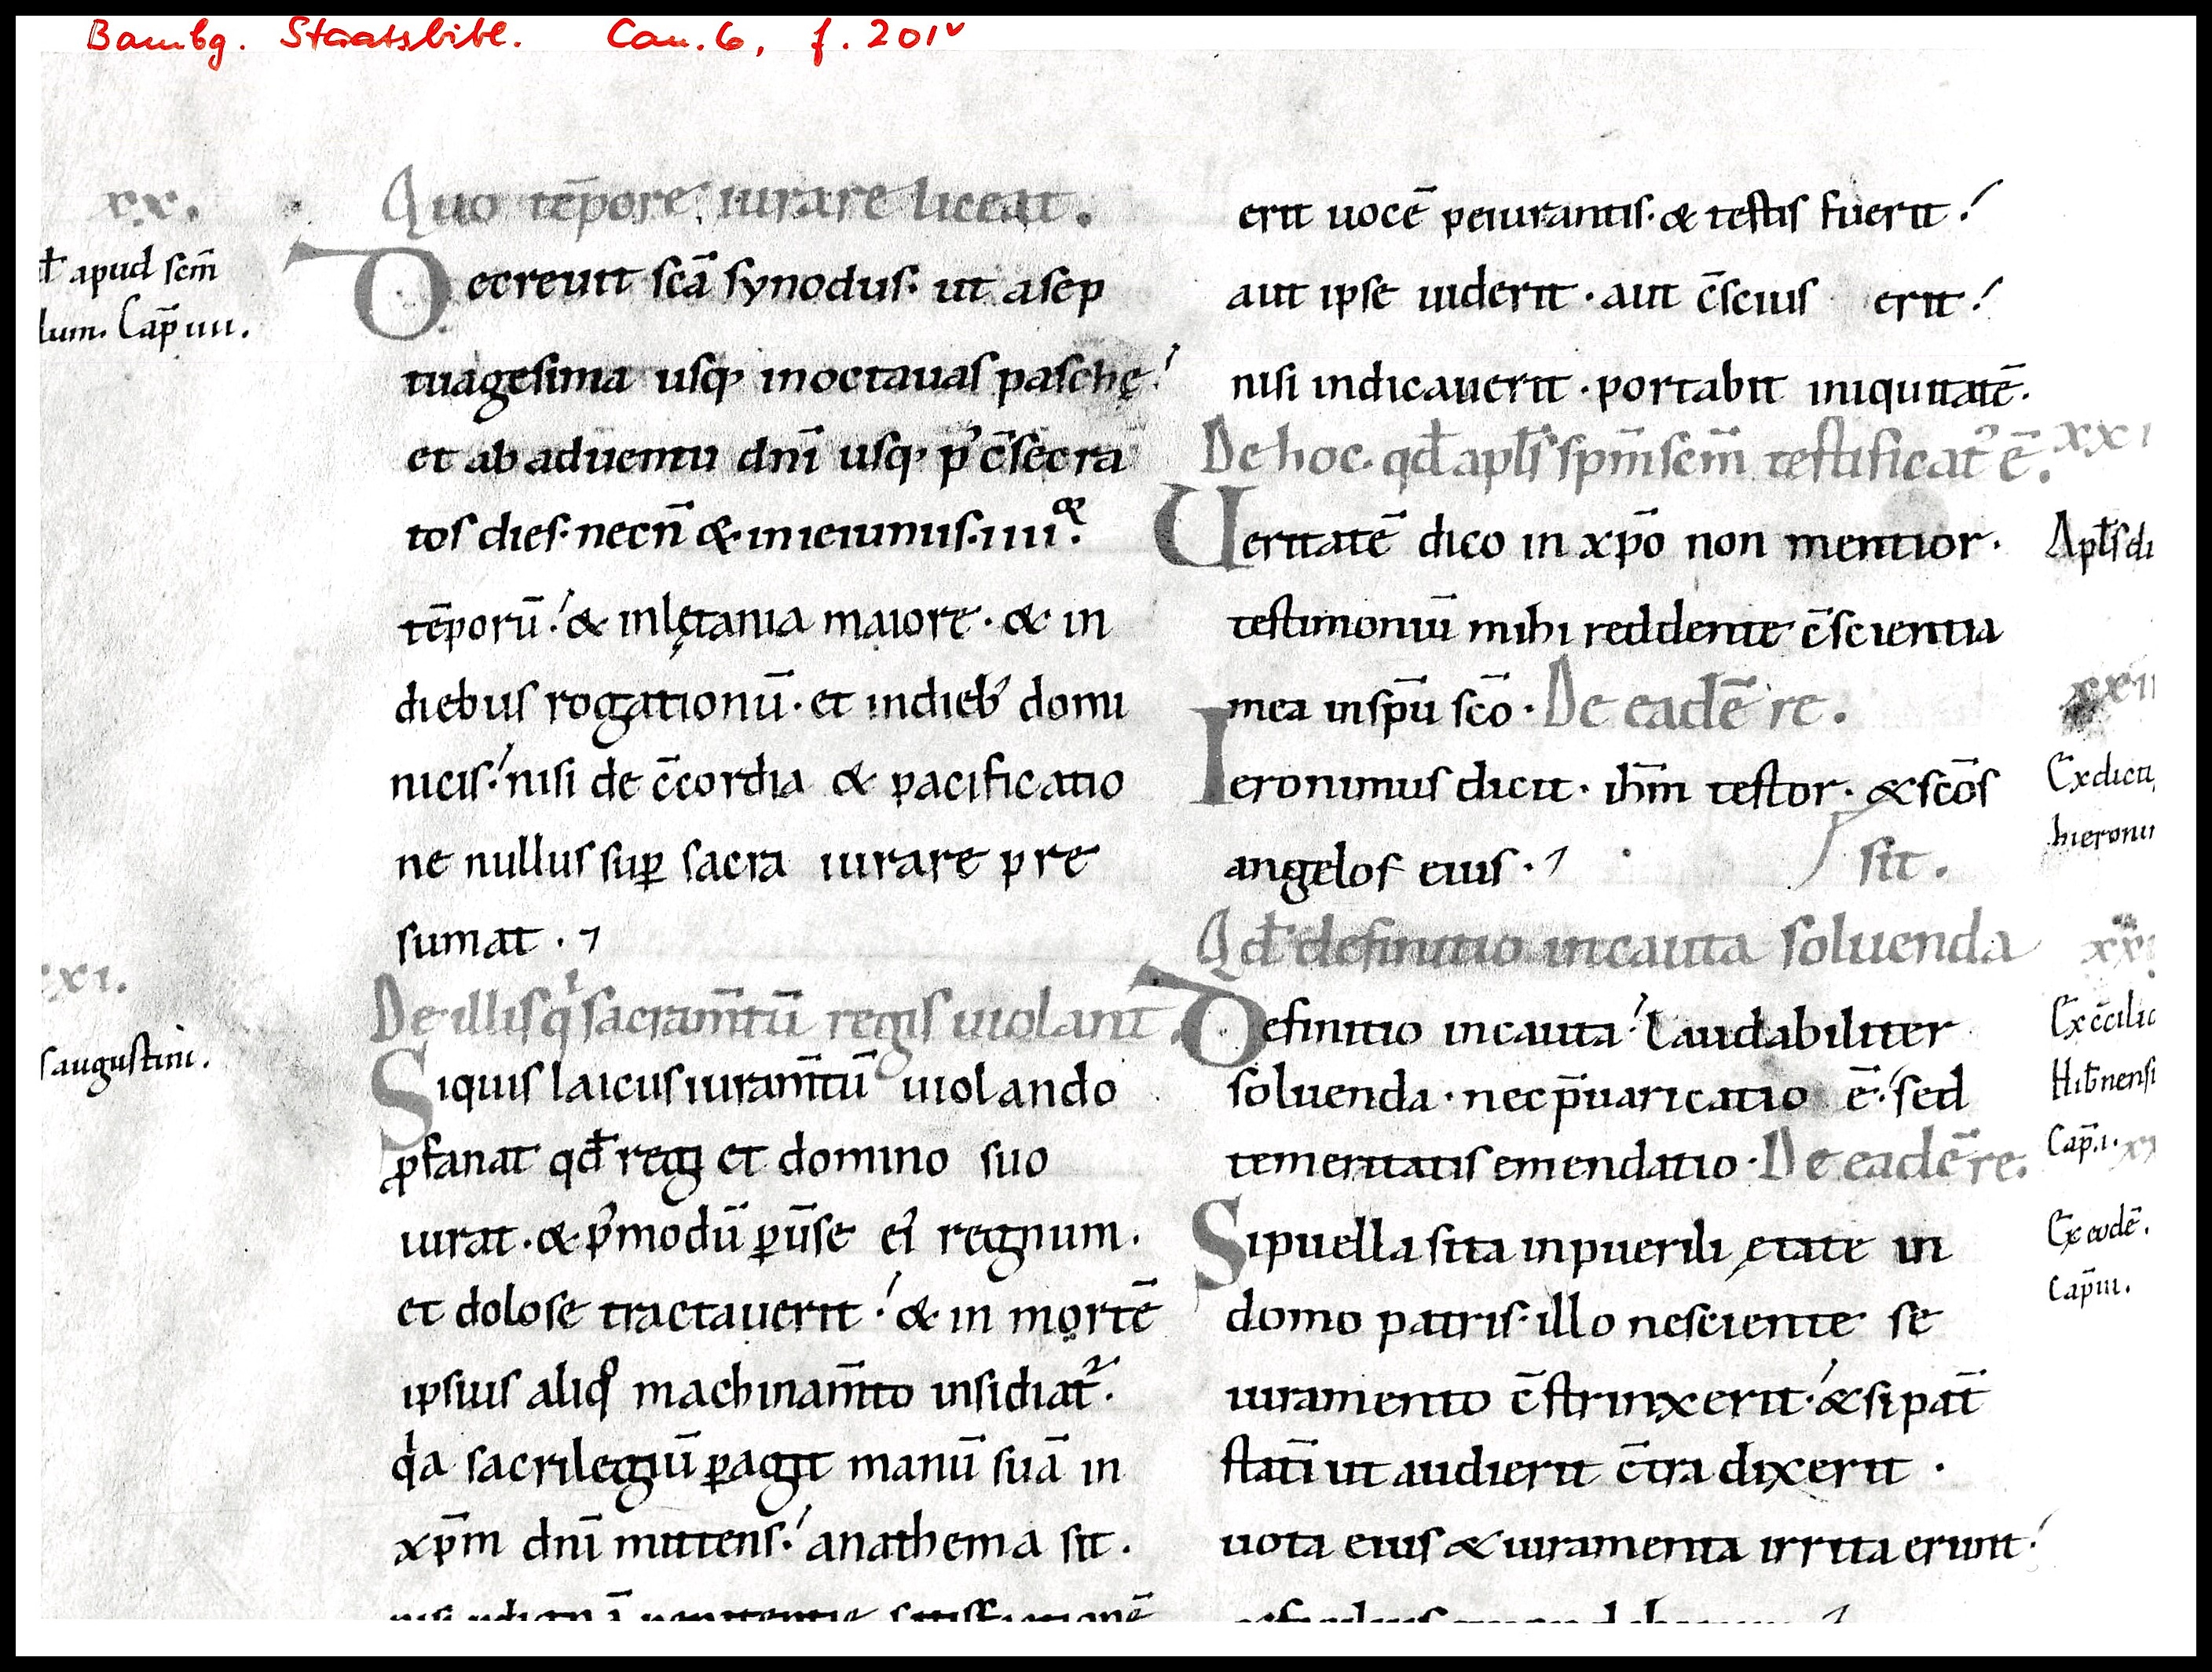 Bambg. Staatsbibl. Can. 6, f. 201v
xx.
Quo tēpore iurare liceat.
đ apud scm̄
lum. Cap̄ iiii.
Decreuit scā synodus· ut a sep
tuagesima usq; in octauas paschę·
et ab aduentu dnī usq; p' c̄secra
tos dies· necn̄ & in ieiuniis· iiiior·
tēporū· & in lętania maiore· & in
diebus rogationū· et in dieb' domi
nicis· nisi de c̄cordia & pacificatio
ne nullus suꝑ sacra iurare pre
sumat·
xxi.
De illis qi sacram̄tū regis uiolant.
s augustini.
Siquis laicus iuram̄tū uiolando
ꝓfanat qđ regi et domino suo
iurat· & p'modū ꝑūse ei' regnum·
et dolose tractauerit· & in mortē
ipsius aliqo machinam̄to insidiat̄'·
qia sacrilegiū ꝑagit manū suā in
xp̄m dnī mittens· anathema sit·
erit uocē peiurantis· & testis fuerit·
aut ipse uiderit· aut c̄scius erit·
nisi indicauerit· portabit iniquitatē·
De hoc· qđ apłs sp̄m scm̄ testificat' ē.
xxi
Ueritatē dico in xp̄o non mentior·
Apłs di
testimoniū mihi reddente c̄scientia
mea in sp̄u scō· De eadē re.
xxii
Ieronimus dicit· ih̄m testor· & scōs
Ex dictis
angelos eius·
hieroni
sit.
Qđ definitio incauta soluenda
Definitio incauta· laudabiliter
Ex c̄cilio
soluenda· nec p̄uaricatio ē· sed
Hib̄nensi
temeritatis emendatio· De eadē re.
Cap̄. i.
Si puella sita in puerili ętate in
Ex eodē.
domo patris· illo nesciente se
Cap̄ iii.
iuramento c̄strinxerit· & si pat̄
statī ut audierit c̄tra dixerit·
uota eius & iuramenta irrita erunt·